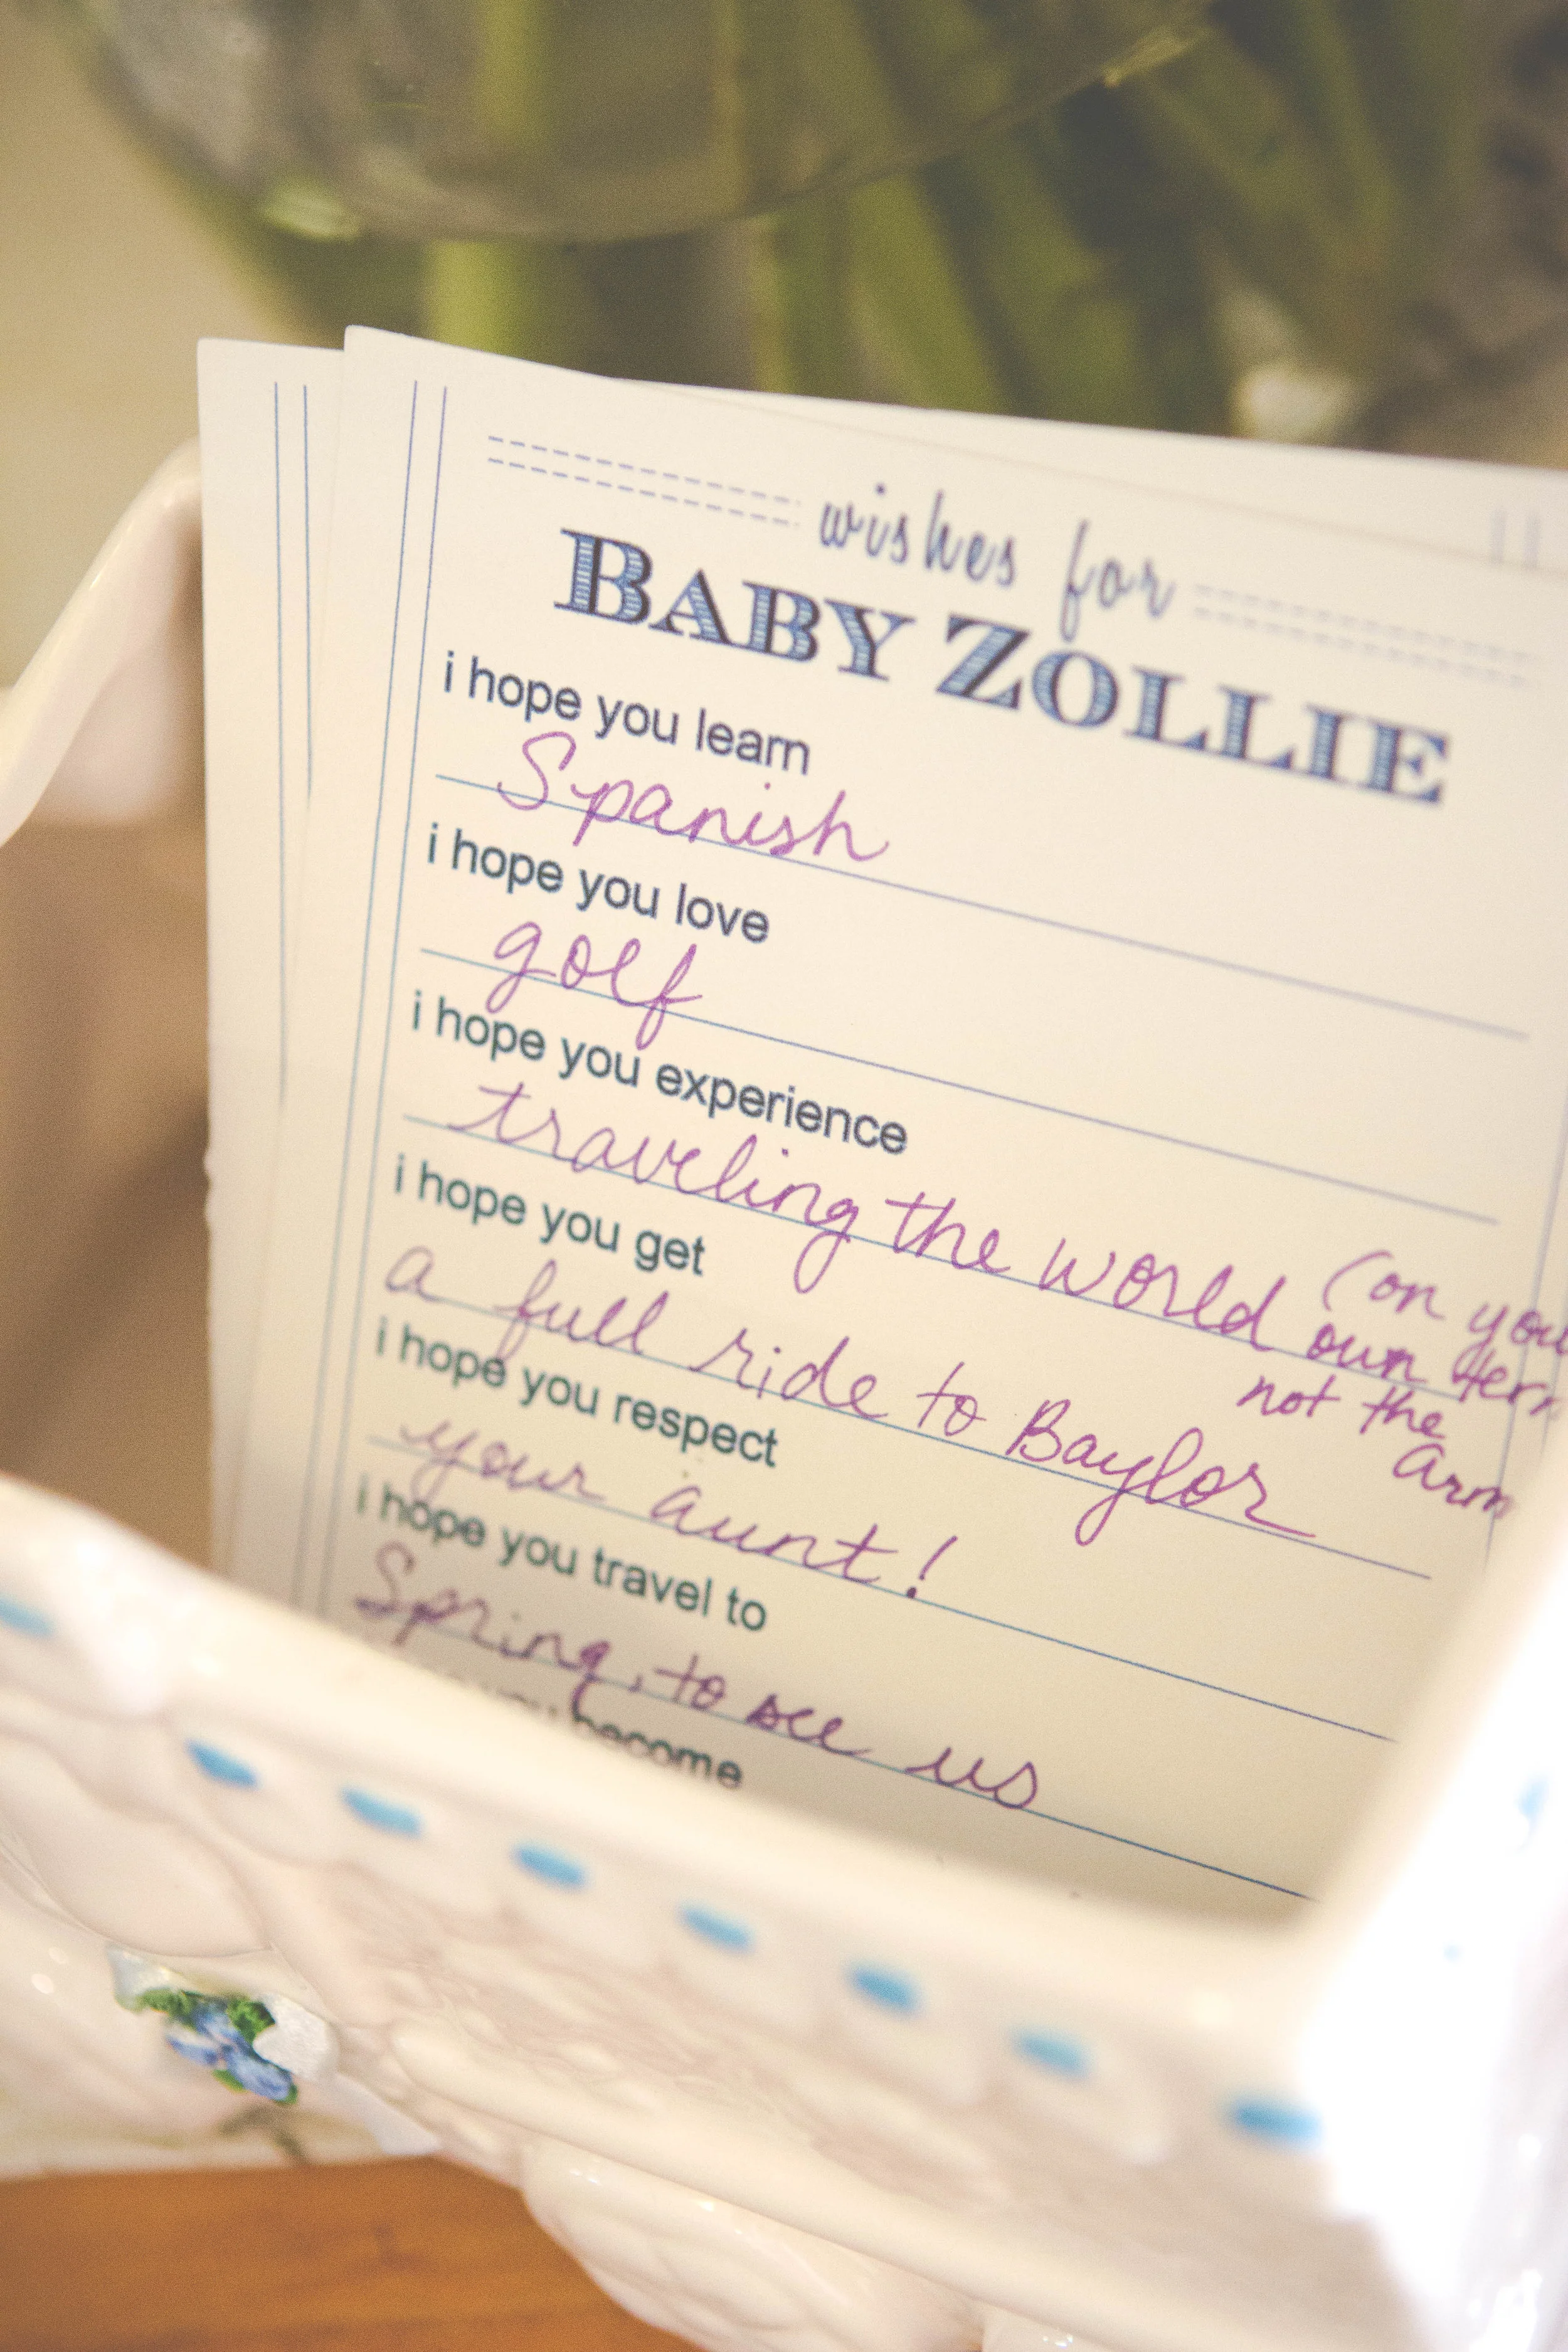 wishes for
BABY ZOLLIE
i hope you learn
Spanish
i hope you love
golf
i hope you experience
traveling the world (on you
own term
not the
Arm
i hope you get
a full ride to Baylor
i hope you respect
your aunt!
i hope you travel to
Spring, to see us
you become